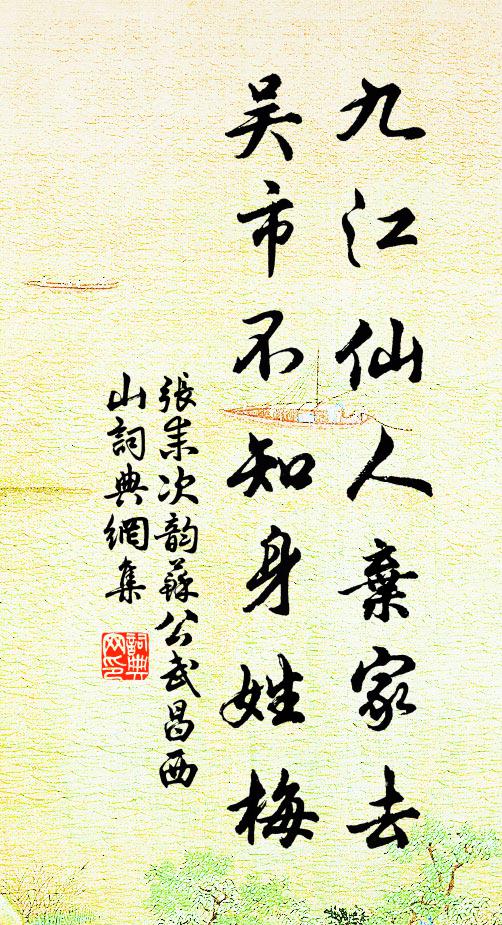 九江仙人棄家去
吴市不知身姓梅
張耒次韵蘇公武昌西
山詞典網集
詞典网印